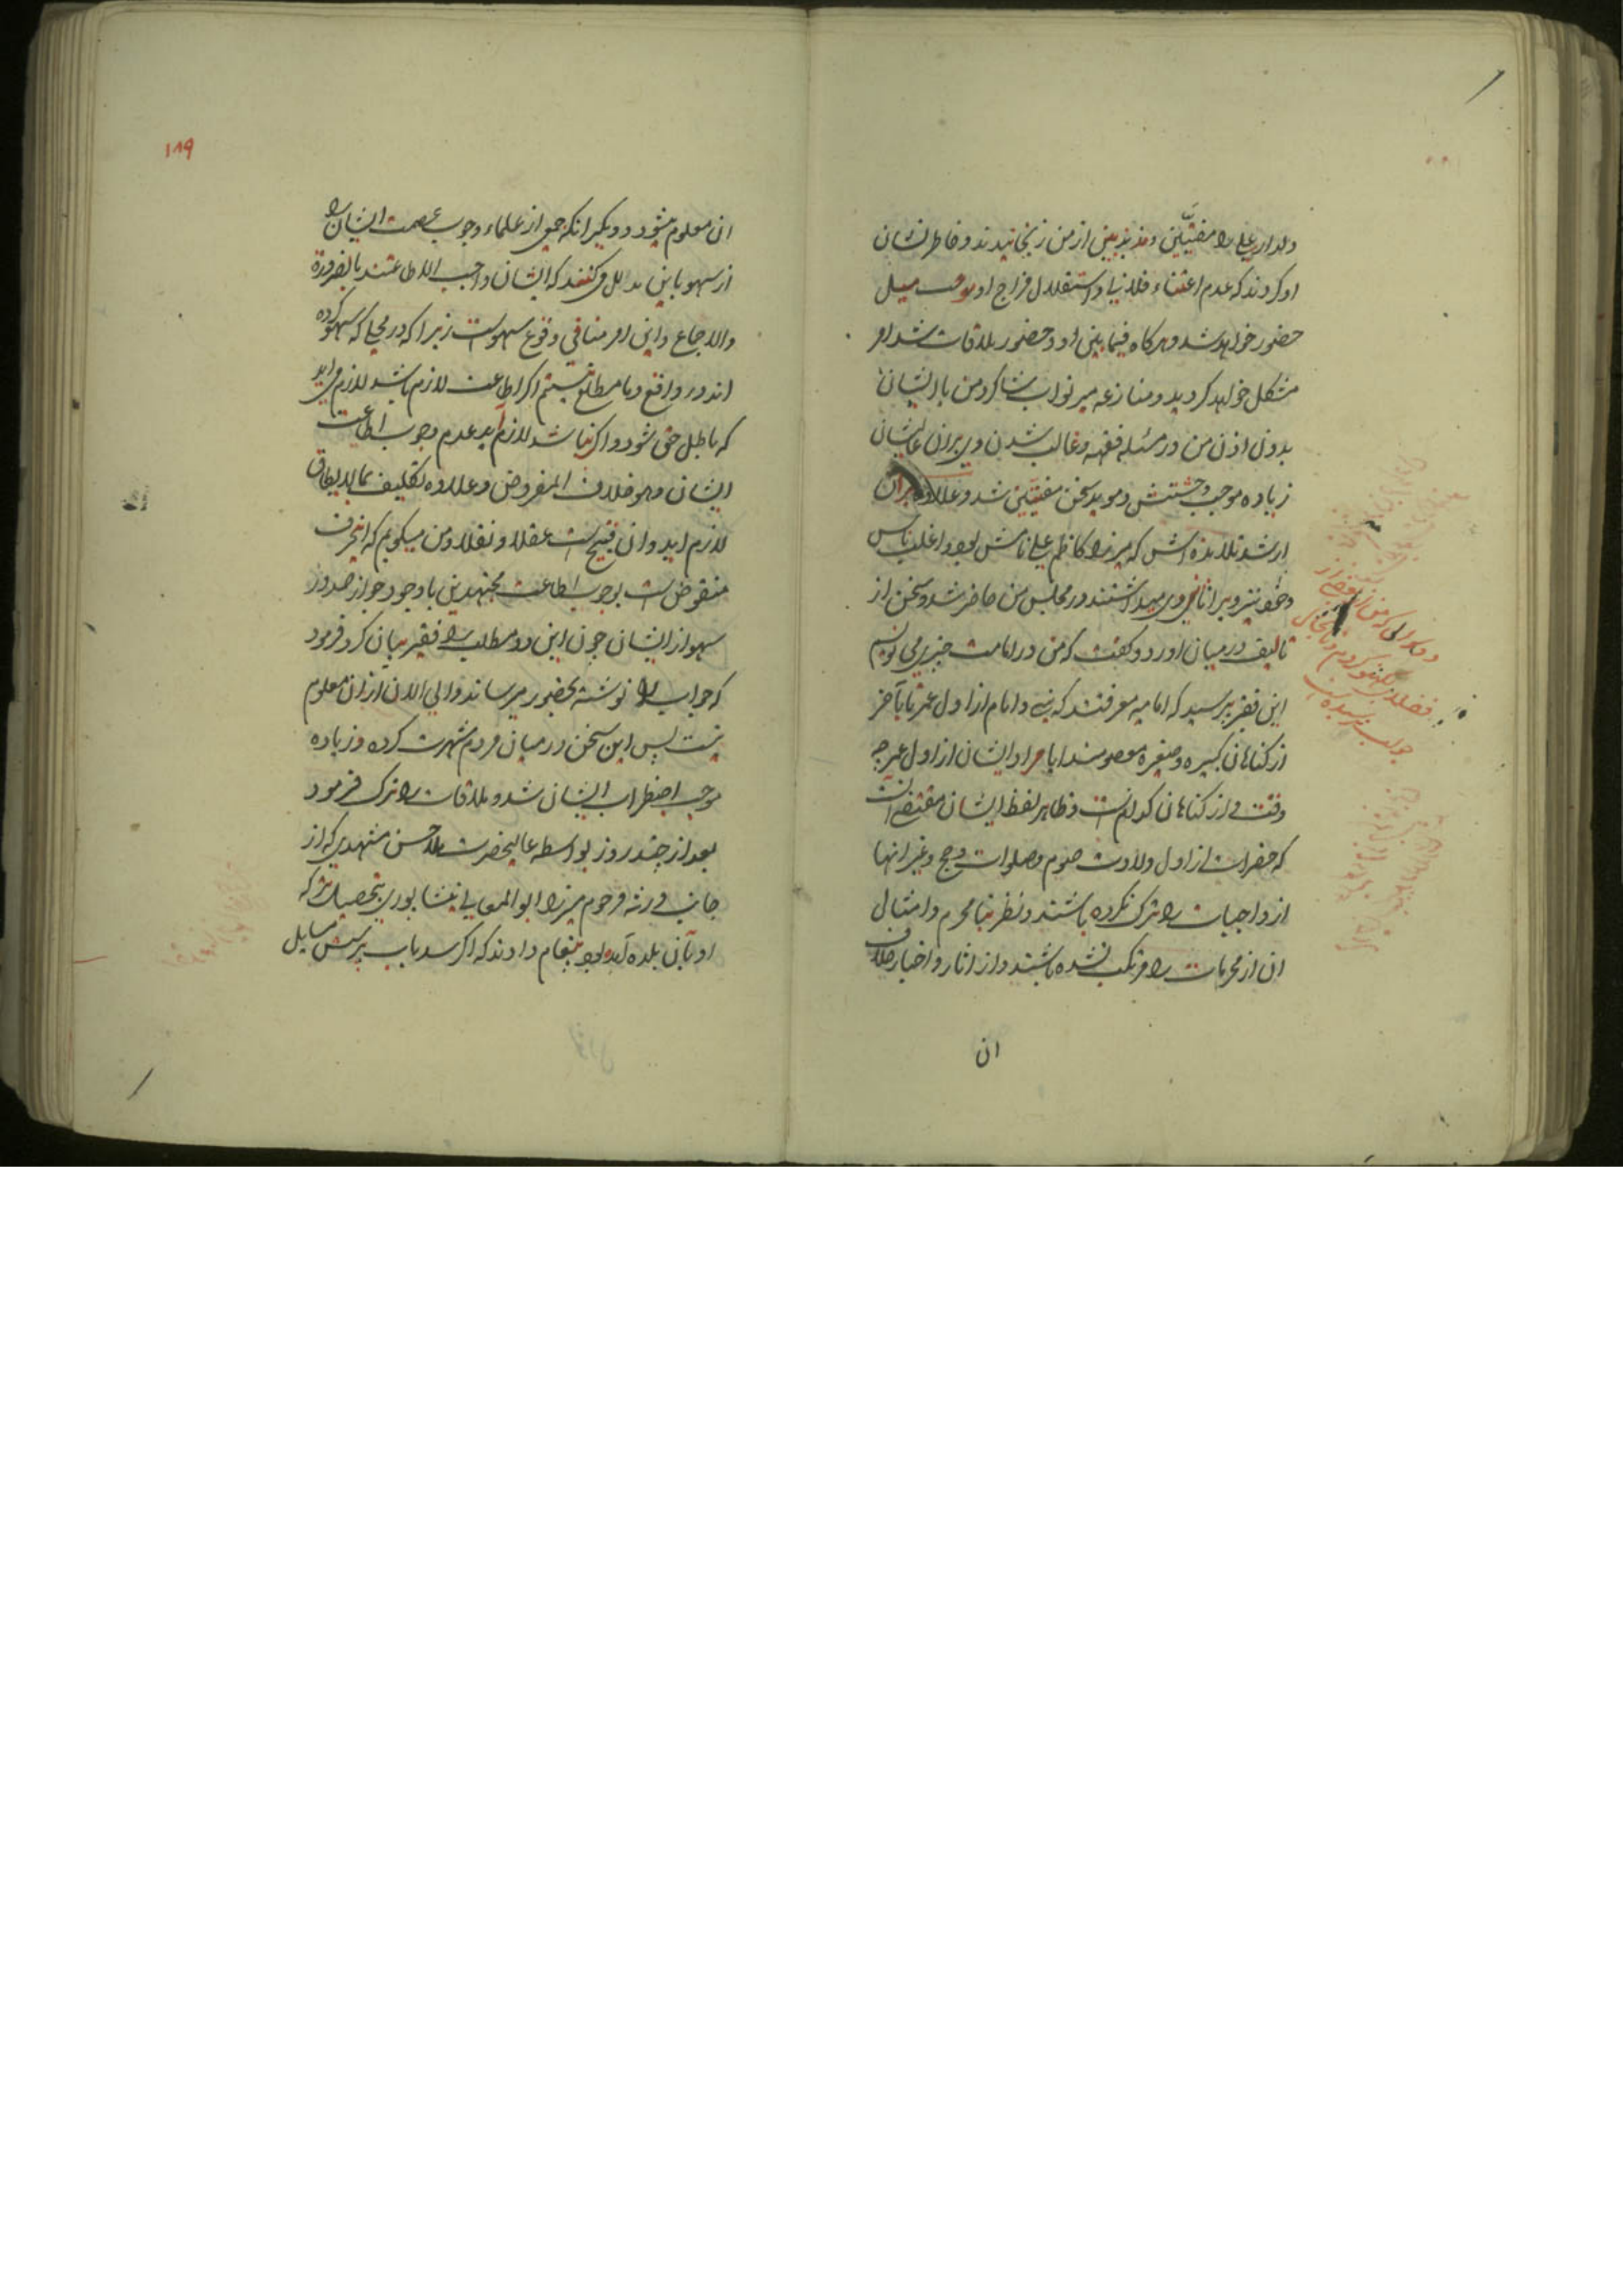 ولدار علی را مفتیین ومذبذبین از من رنجانیدند و خاطر نشان
او کردند که عدم اعتناء فلانیا واستقلال مزاج او موجب میل
حضور خواهد شد و هر کاه فیما بین او و حضور ملاقات شد امر
مشکل خواهد کردید و منازعه میر نواب شاکرد من با ایشان
بدون اذن من در مسئله فقهیه و غالب شدن وی بران عالیشان
زیاده موجب وحشتش و موید سخن مفتیین شد و علاوه بران
ارشد تلامذه اش که میرزا کاظم علی نامش بود و اغلب ناس
ویرا ثانی وی میدانستند در مجلس من حاضر شد و سخن از
تالیف در میان اورد و کفت که من در امامت چیزی می نویسم
این فقیر پرسید که امامیه معرفتند که نبی و امام از اول عمر تا بآخر
از کناهان کبیره و صغیره معصومند ایا مراد ایشان از اول عمر چه
وقت و از کناهان کدام است و ظاهر لفظ ایشان مقتضی انست
که حضرات از اول ولادت صوم و صلوات و حج و غیر انها
از واجبات را ترک نکرده باشند و نظر بنا محرم و امثال
ان از محرمات را مرتکب نشده باشند و از اثار و اخبار خلاف
ان
جواب نرسیده
۱۸۹
ان معلوم میشود و دیکر انکه جمعی از علماء وجوب عصمت ایشان را
از سهو باین مدلل می کنند که ایشان واجب الاطاعتند بالضرورة
والاجماع و این امر منافی وقوع سهو است زیرا که در محلی که سهو کرده
اند در واقع و ما مطلع نیستیم اکر اطاعت لازم باشد لازم می اید
که باطل حق شود و اکر نباشد لازم آید عدم وجوب اطاعت
ایشان وهو خلاف المفروض و علاوه تکلیف بمالایطاق
لازم اید و ان قبیح است عقلا و نقلا و من میکویم که اینحرف
منقوض است بوجوب اطاعت مجتهدین با وجود جواز صدور
سهو از ایشان چون این دو مطلب را فقیر بیان کرد فرمود
که جواب را نوشته بحضور میرساند و الی الان از ان معلوم
نیست پس این سخن در میان مردم شهرت کرده و زیاده
موجب اضطراب ایشان شد و ملاقات را ترک فرمود
بعد از چند روز بواسطه عالیحضرت ملا حسن مشهدی که از
جانب ورثه مرحوم میرزا ابو المعالی نیشابوری بتحصیل ترکه
او بآن بلده آمده بود پیغام دادند که اکر سد باب پرسش مسایل